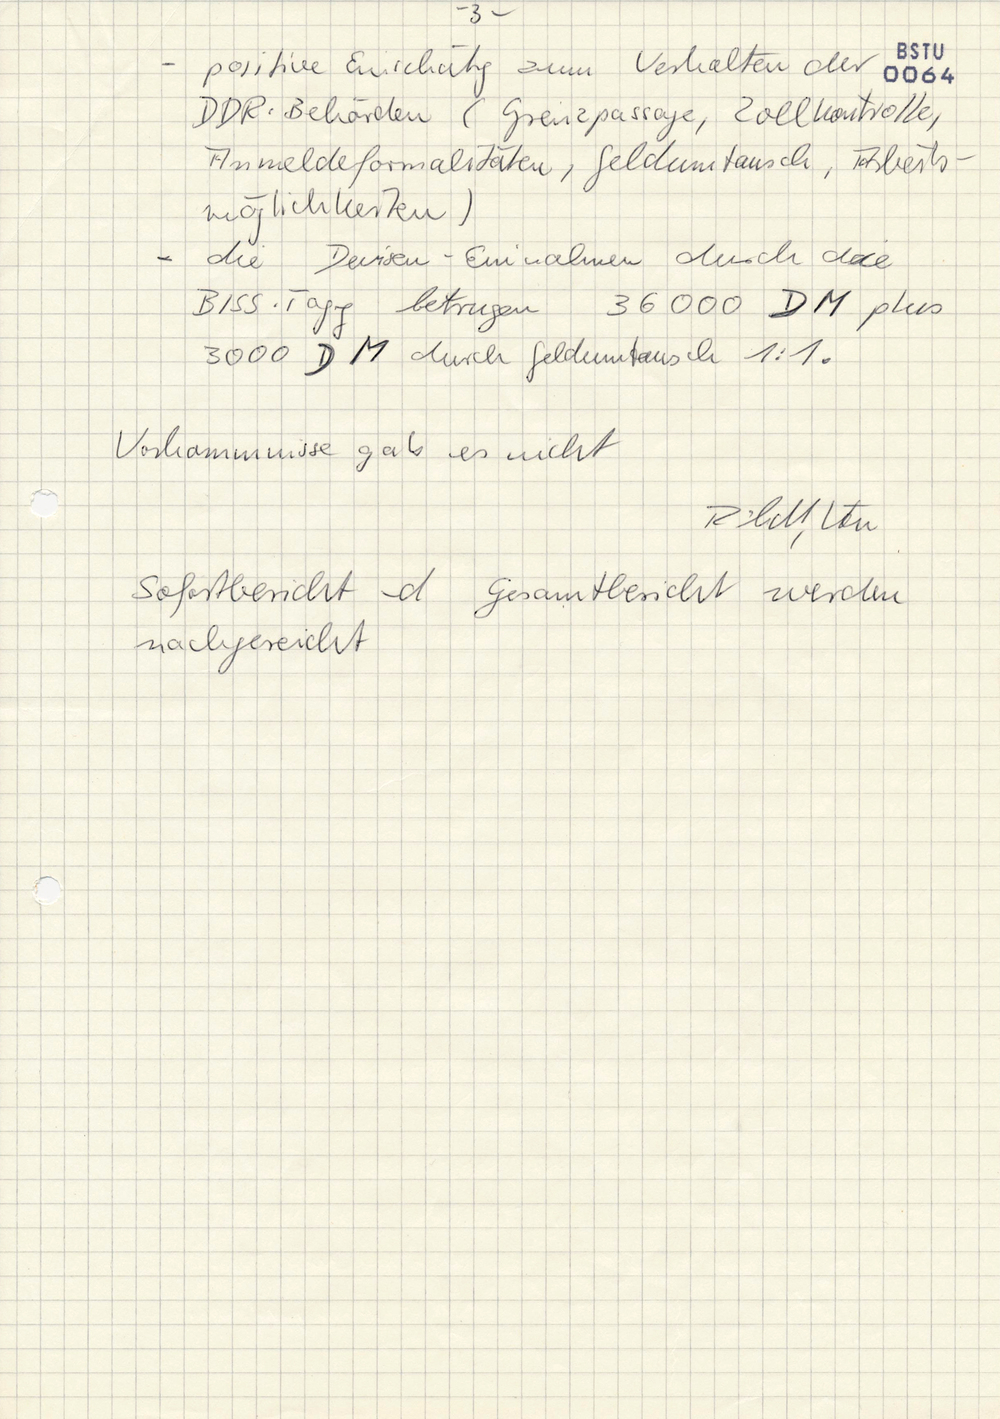 -3-
BSTU
0064
- positive Einschätzg zum Verhalten der
DDR-Behörden (Grenzpassage, Zollkontrolle,
Anmeldeformalitäten, Geldumtausch, Arbeits-
möglichkeiten)
- die Devisen-Einnahmen durch die
BISS-Tagg betrugen 36000 DM plus
3000 DM durch Geldumtausch 1:1.
Vorkommnisse gab es nicht
Sofortbericht Gesamtbericht werden
nachgereicht